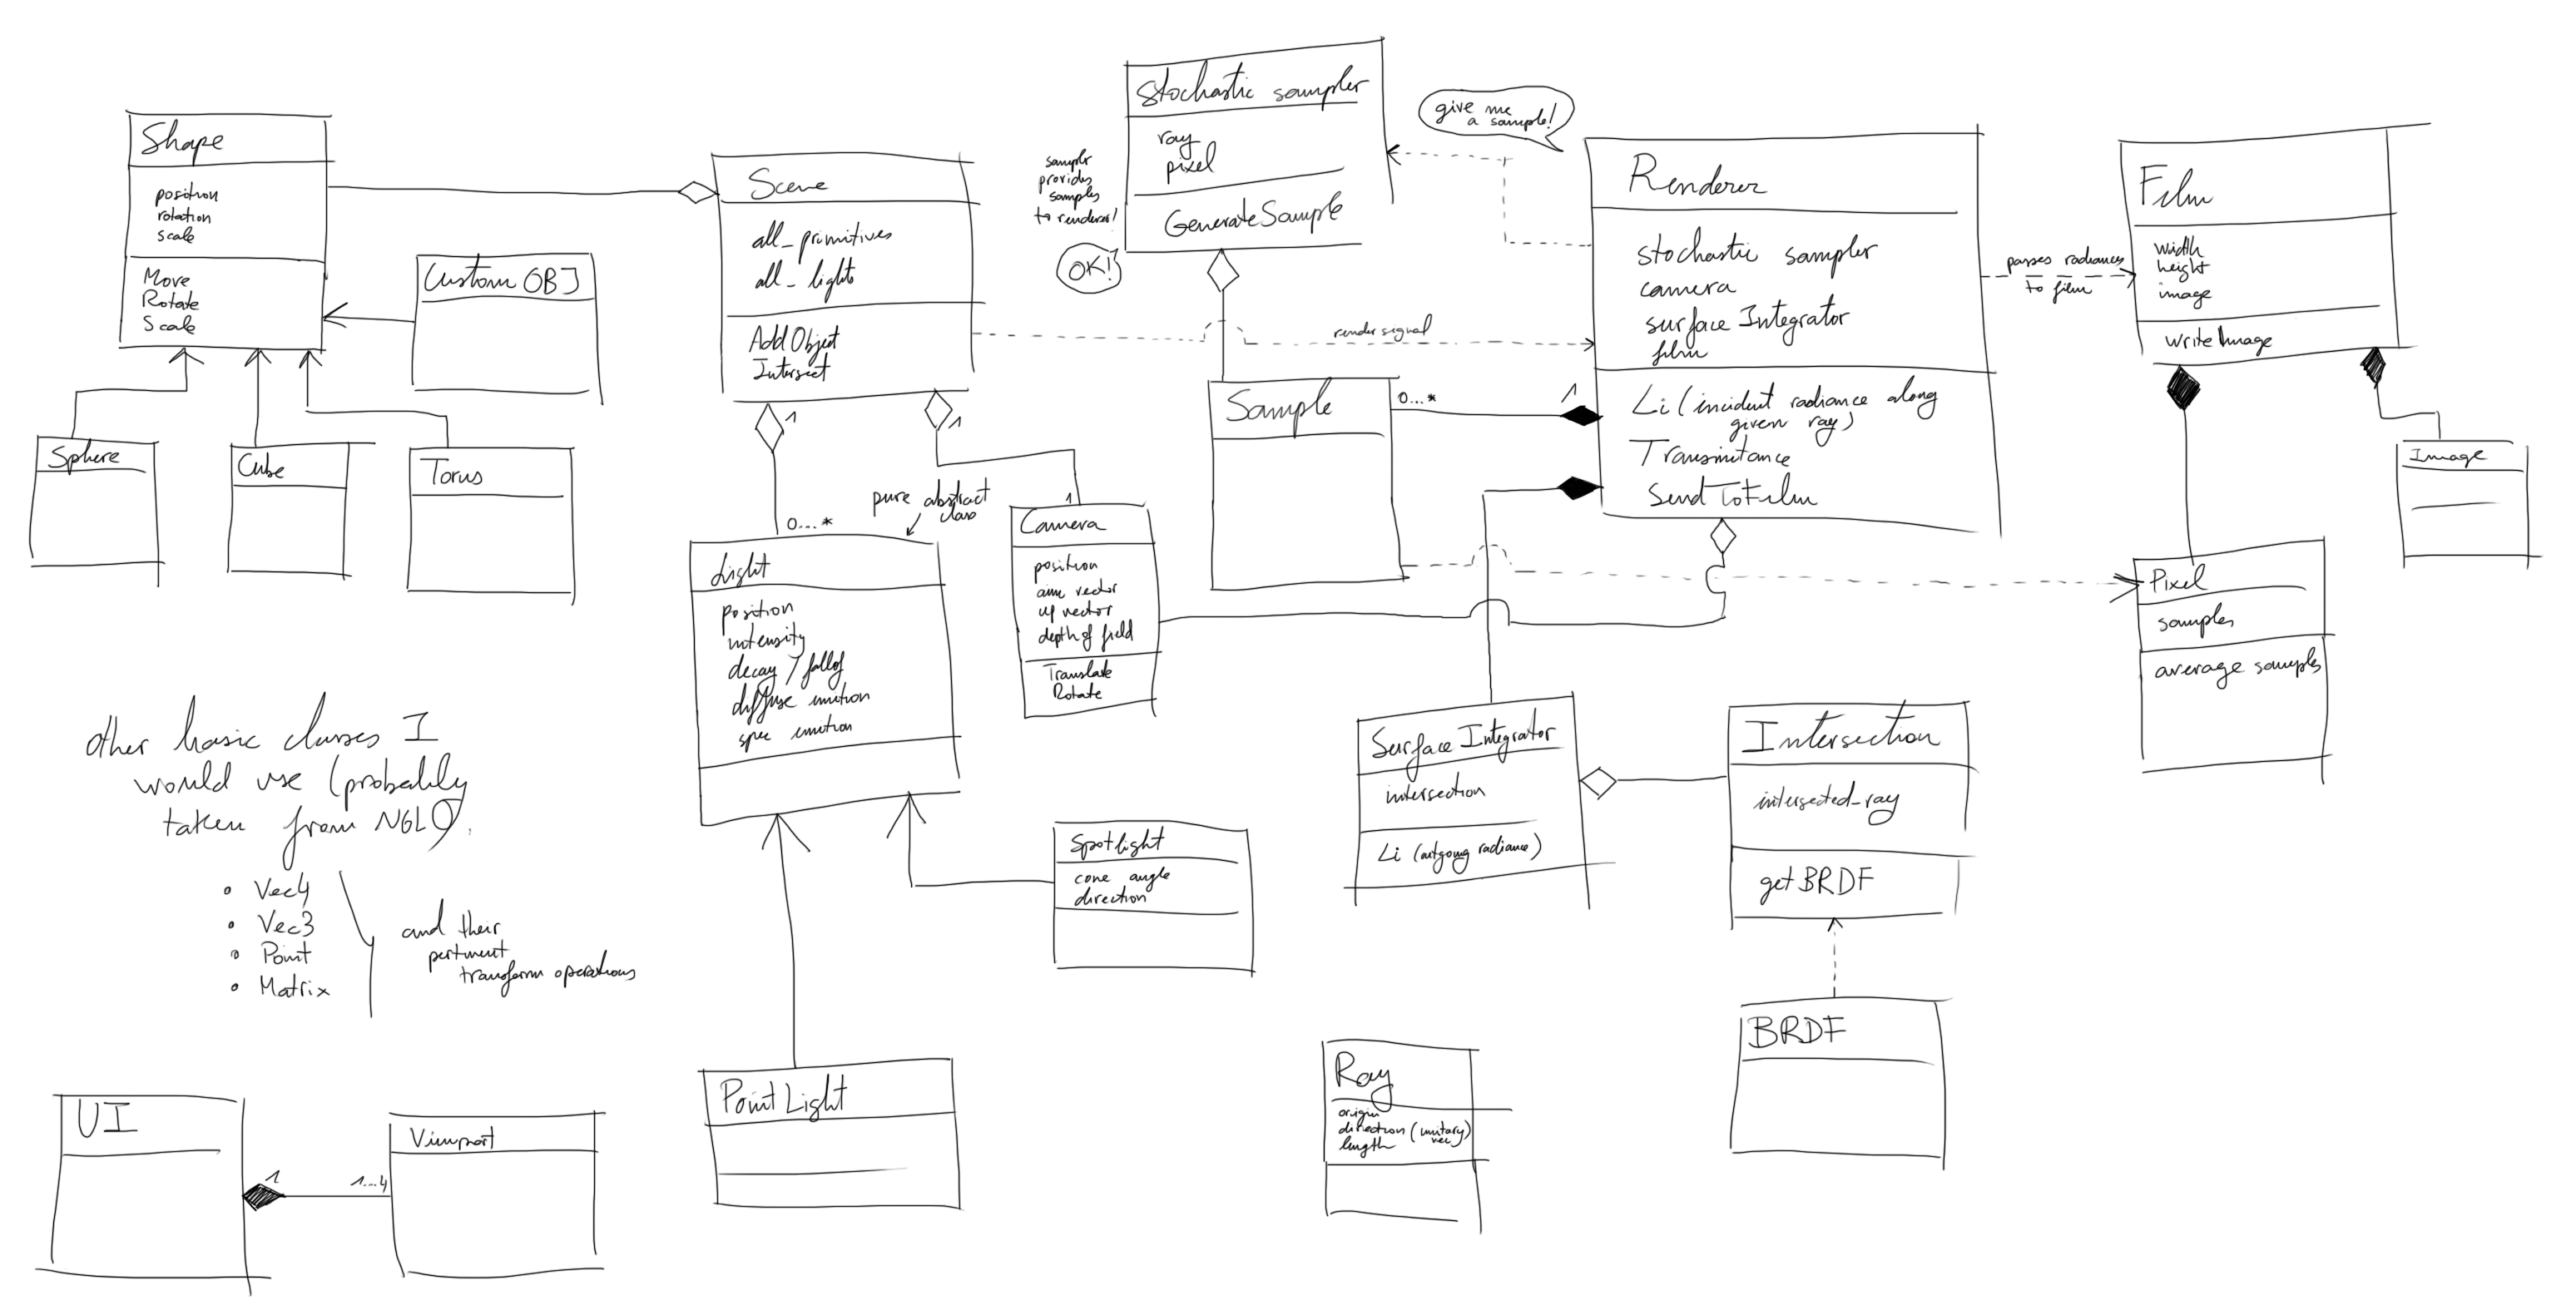 Shape
position
rotation
scale
Move
Rotate
Scale
Custom OBJ
Sphere
Cube
Torus
Scene
all_primitives
all_lights
AddObject
Intersect
1
1
0...*
pure abstract
class
1
Light
position
intensity
decay / fallof
diffuse emition
spec emition
Camera
position
aim vector
up vector
depth of field
Translate
Rotate
Spotlight
cone angle
direction
Point Light
sampler
provides
samples
to renderer!
OK!
Stochastic sampler
ray
pixel
GenerateSample
give me
a sample!
render signal
Sample
0...*
1
Renderer
stochastic sampler
camera
surface Integrator
film
Li (incident radiance along
given ray)
Transmitance
SendToFilm
passes radiances
to film
Film
width
height
image
writeImage
Image
Pixel
samples
average samples
Surface Integrator
intersection
Li (outgoing radiance)
Intersection
intersected_ray
getBRDF
BRDF
Ray
origin
direction (unitary
vec)
length
other basic classes I
would use (probably
taken from NGL).
• Vec4
• Vec3
• Point
• Matrix
and their
pertinent
transform operations
UI
1
1...4
Viewport